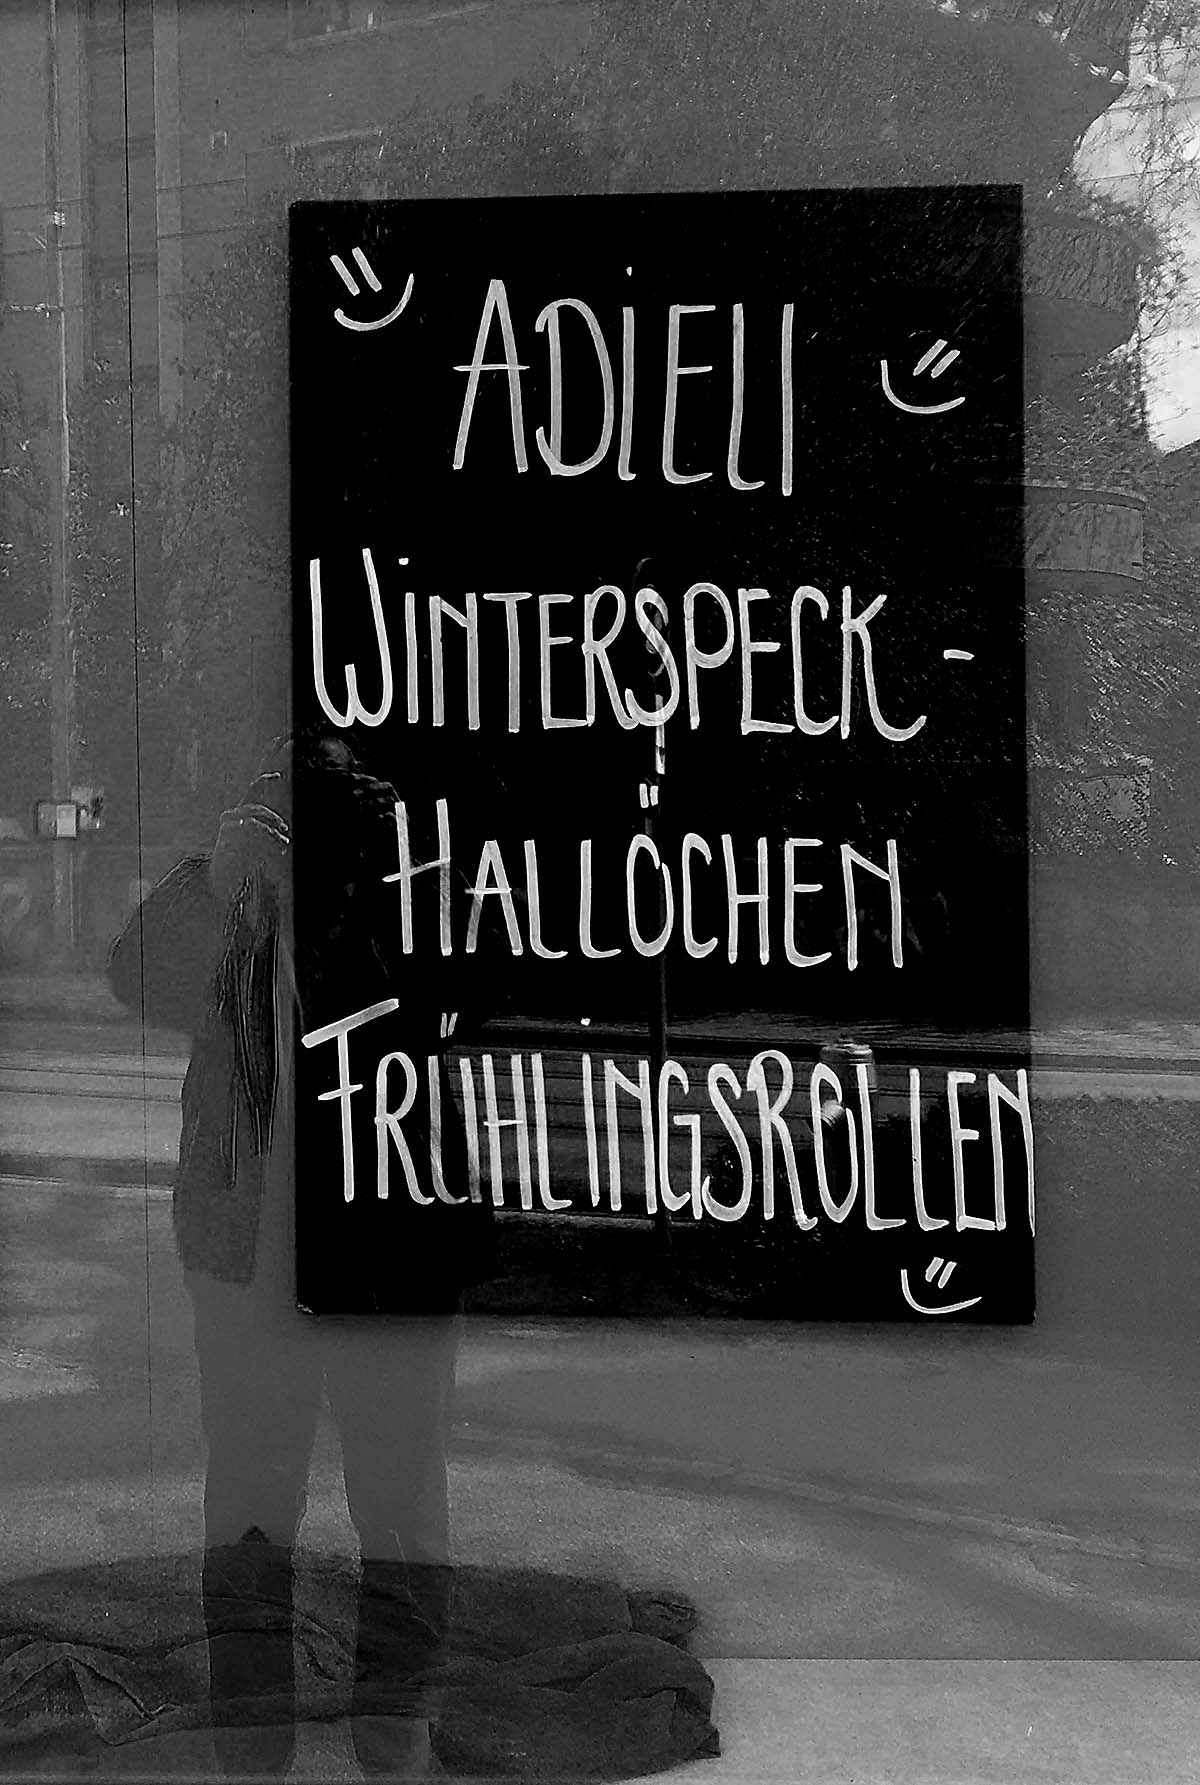 ADiELi
WiNTERSPECK -
HALLÖCHEN
FRÜHLiNGSROLLEN